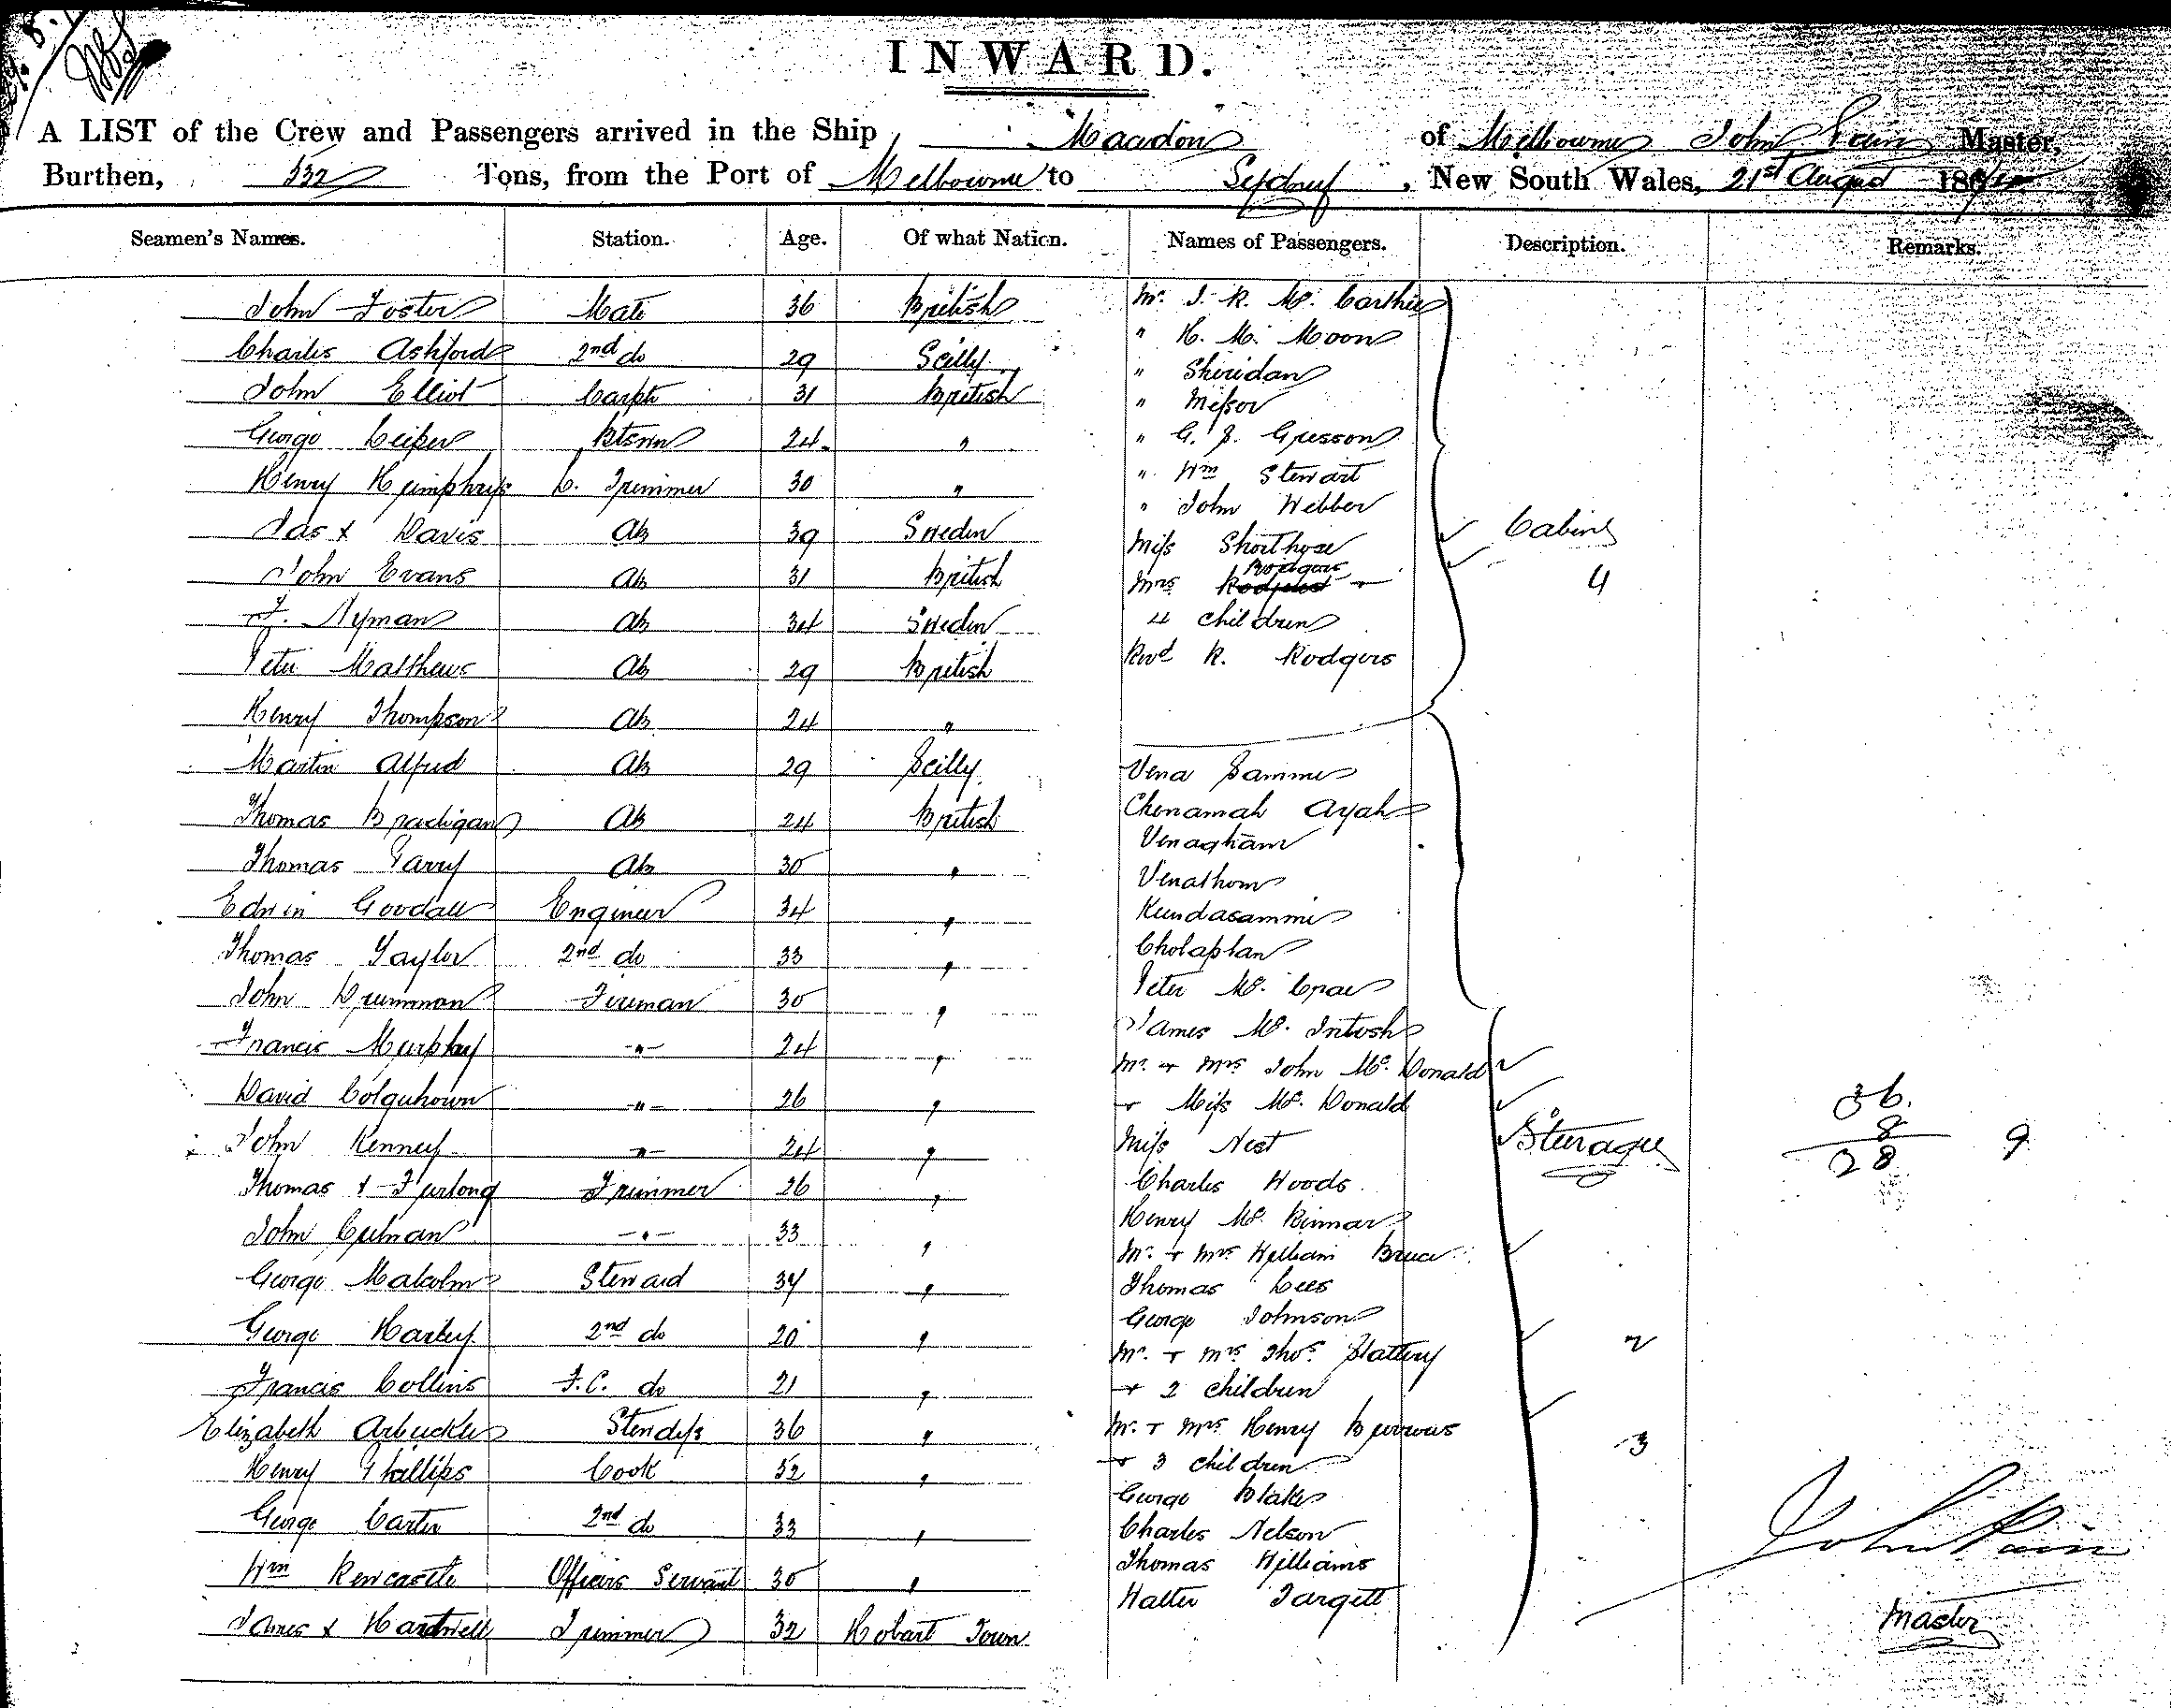 INWARD.
A LIST of the Crew and Passengers arrived in the Ship Macedon of Melbourne John Pain Master,
Burthen, 532 Tons, from the Port of Melbourne to Sydney, New South Wales, 21st August 186
Seamen's Names. Station. Age. Of what Nation. Names of Passengers. Description. Remarks.
John Foster Mate 36 British
Charles Ashford 2nd do 29 Scilly
John Elliot Carptr 31 British
George Leiper 24 "
Henry Humphreys L. Trimmer 30 "
Jas x Davis Ab 39 Sweden
John Evans Ab 31 British
F. Nyman Ab 34 Sweden
Peter Matthews Ab 29 British
Henry Thompson Ab 24 "
Martin Alfred Ab 29 Scilly
Thomas Bradigan Ab 24 British
Thomas Parry Ab 30 "
Edwin Goodall Engineer 34 "
Thomas Taylor 2nd do 33 "
John Drummon Fireman 30 "
Francis Murphy -"- 24 "
David Colquhoun -"- 26 "
John Kenney -"- 24 "
Thomas x Furlong Trimmer 26 "
John Culnan -"- 33 "
George Malcolm Steward 34 "
George Harley 2nd do 20 "
Francis Collins F.C. do 21 "
Elizabeth Arbuckle Stewdess 36 "
Henry Phillips Cook 52 "
George Carter 2nd do 33 "
Wm Rewcastle Officers Servant 30 "
James x Hartwell Trimmer 32 Hobart Town
Mr. J. R. Mc. Carthie
" H. M. Moon
" Sheridan
" Messor
" G. J. Gresson
" Wm Stewart
" John Webber
Miss Shorthose
Mrs Rodgers +
4 children
Revd R. Rodgers
Cabin
4
Vena Sammi
Chenamah Ayah
Venagham
Venathom
Kundasammi
Cholaptan
Peter Mc. Crae
James Mc. Intosh
Mr. + Mrs John Mc. Donald
+ Miss Mc. Donald
Miss Nest
Charles Woods
Henry Mc. Kinnar
Mr. + Mrs William Bruce
Thomas Lees
George Johnson
Mr. + Mrs Thos. Slattery
+ 2 children
Mr. + Mrs Henry Burrows
+ 3 children
George Blake
Charles Nelson
Thomas Williams
Walter Targett
Steerage
2
3
36.
8
28
9
John Pain
Master